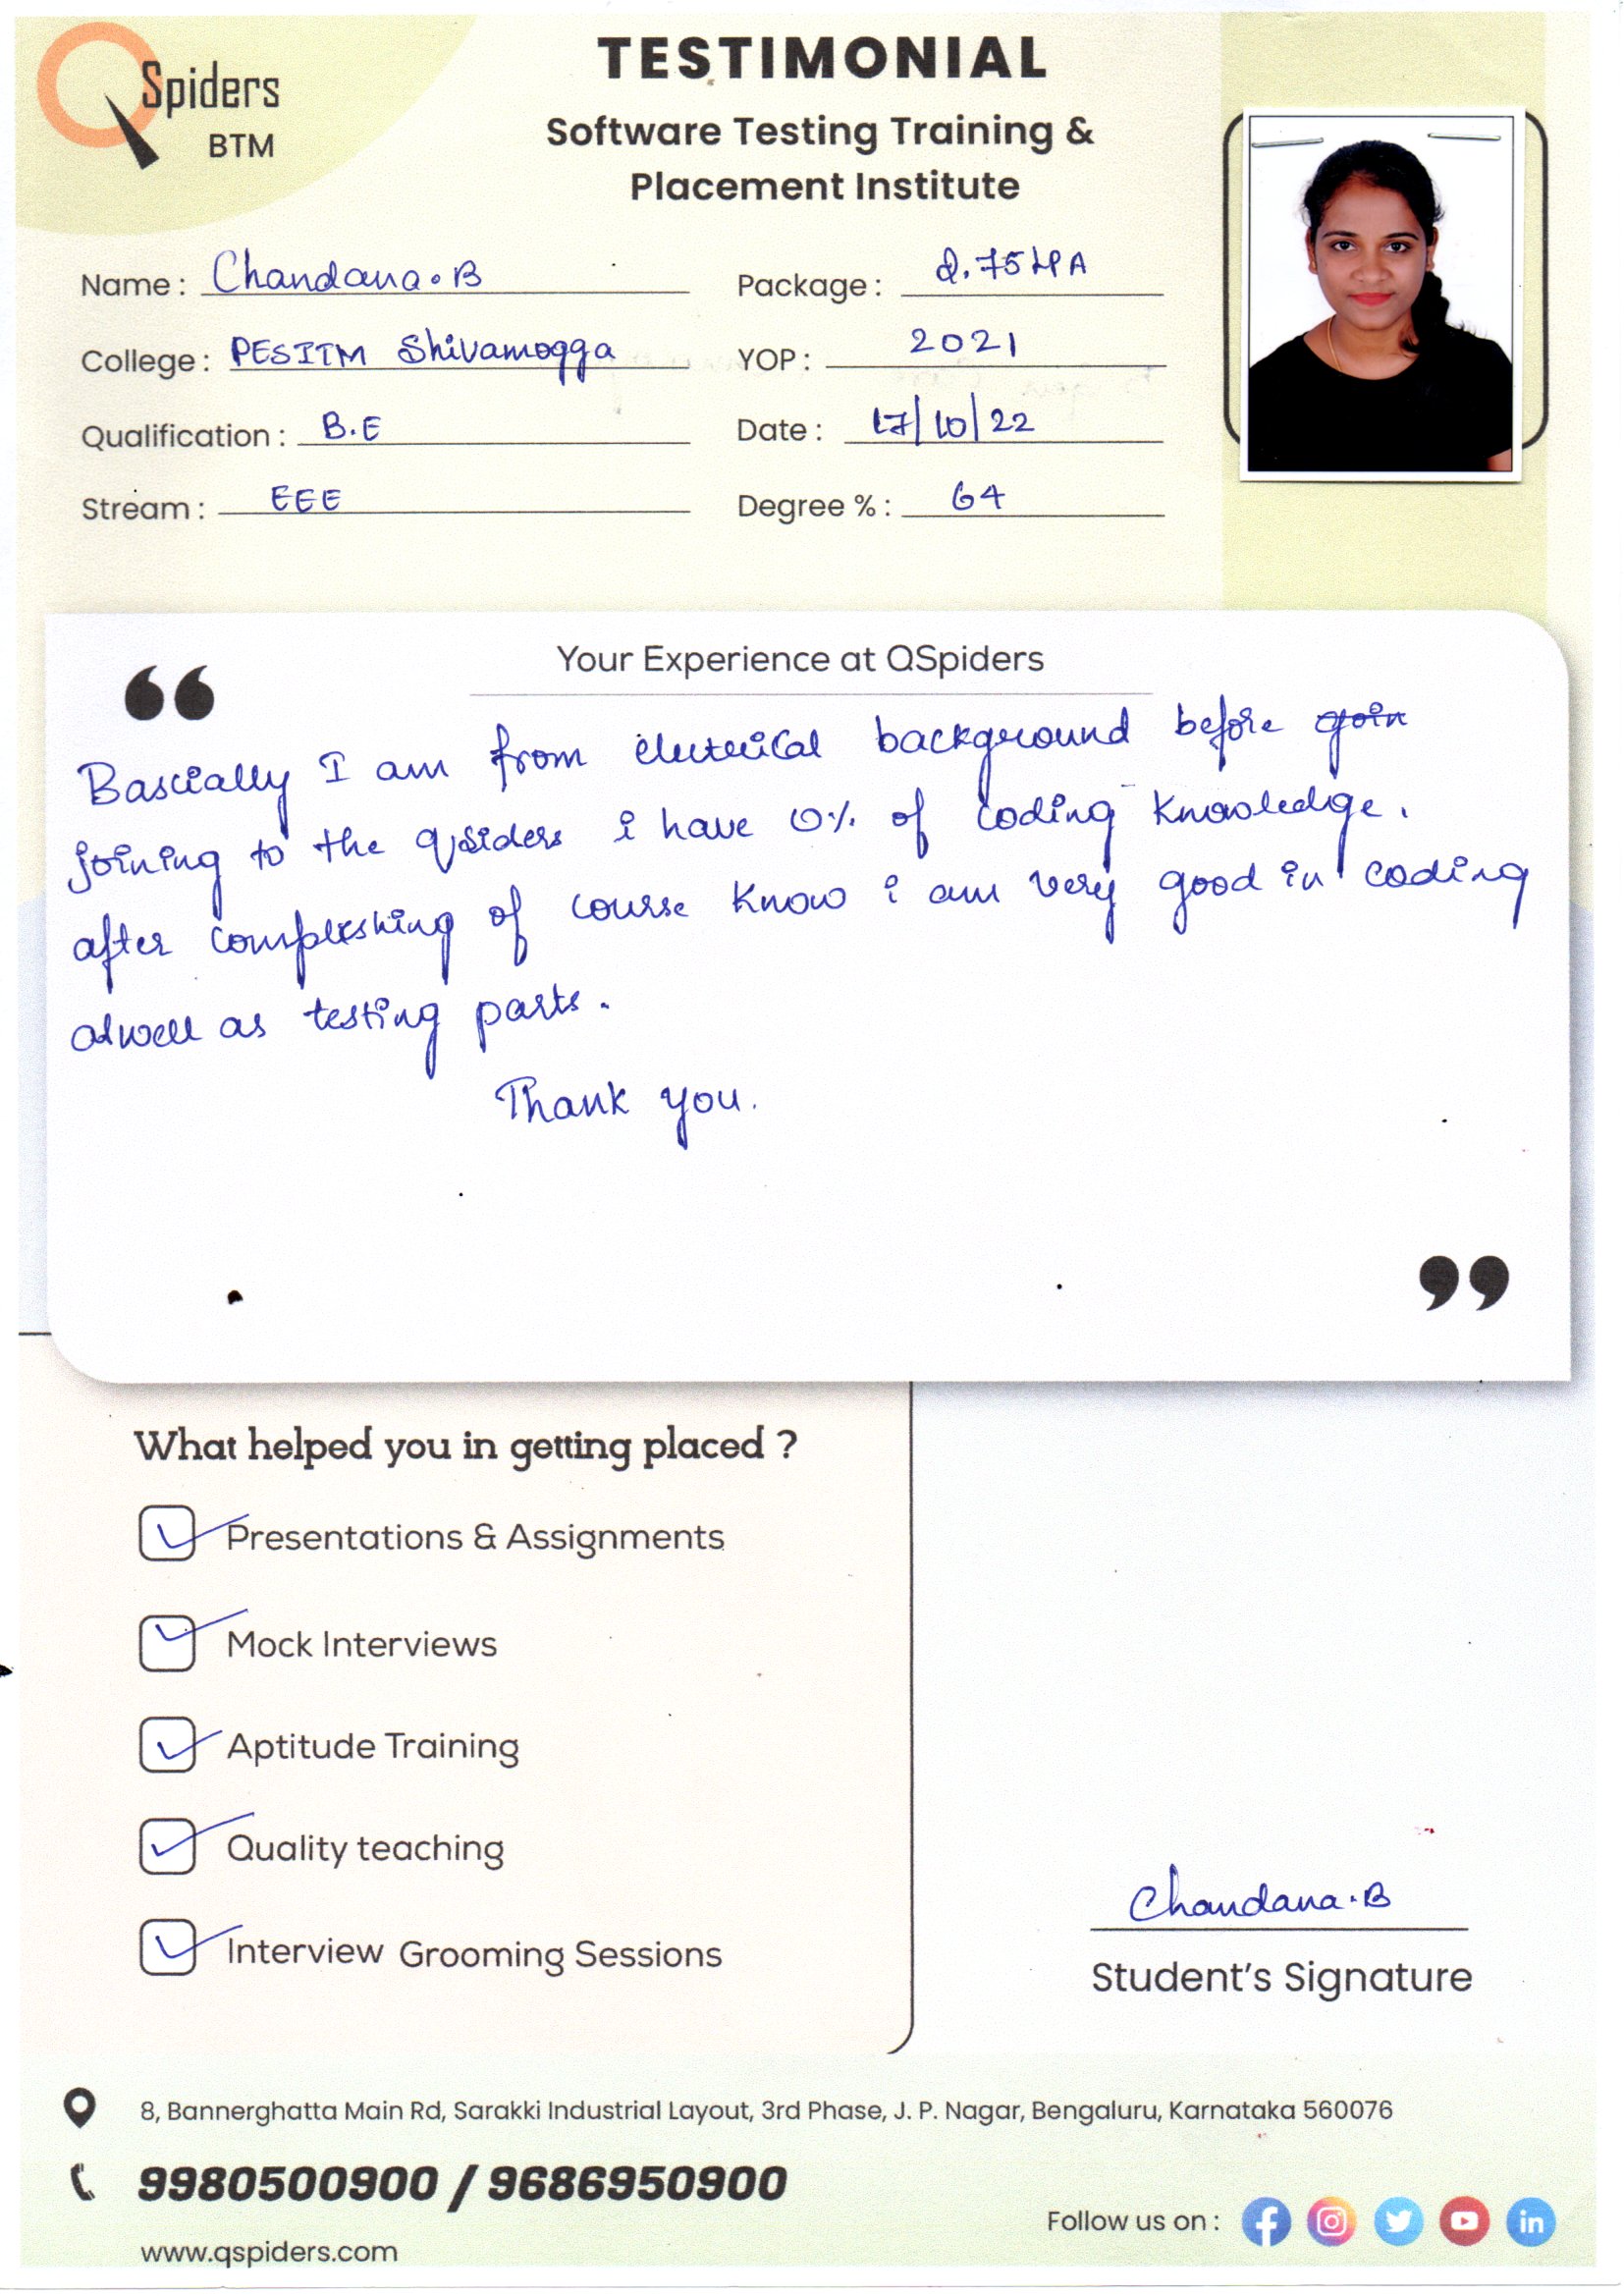 Spiders
BTM
TESTIMONIAL
Software Testing Training &
Placement Institute
Name : Chandana.B
Package : 2.75 LPA
College : PESITM Shivamogga
YOP : 2021
Qualification : B.E
Date : 17/10/22
Stream : EEE
Degree % : 64
Your Experience at QSpiders
Bascially I am from electrical background before join
joining to the qsiders i have 0% of coding knowledge.
after compleshing of course know i am very good in coding
aswell as testing parts.
Thank you.
What helped you in getting placed ?
Presentations & Assignments
Mock Interviews
Aptitude Training
Quality teaching
Interview Grooming Sessions
Chandana.B
Student's Signature
8, Bannerghatta Main Rd, Sarakki Industrial Layout, 3rd Phase, J. P. Nagar, Bengaluru, Karnataka 560076
9980500900 / 9686950900
www.qspiders.com
Follow us on :